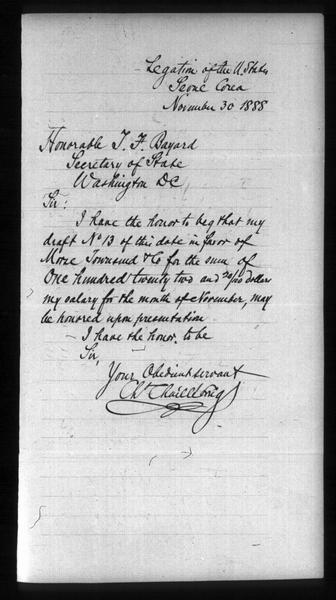 Legation of the U. States
Seoul Corea
November 30 1888
Honorable T. F. Bayard
Secretary of State
Washington DC
Sir:
I have the honor to beg that my
draft No 13 of this date in favor of
Morse Townsend & Co for the sum of
One hundred twenty two and 20/100 dollars
my salary for the month of November, may
be honored upon presentation.
I have the honor, to be
Sir,
Your Obedient servant
Chs